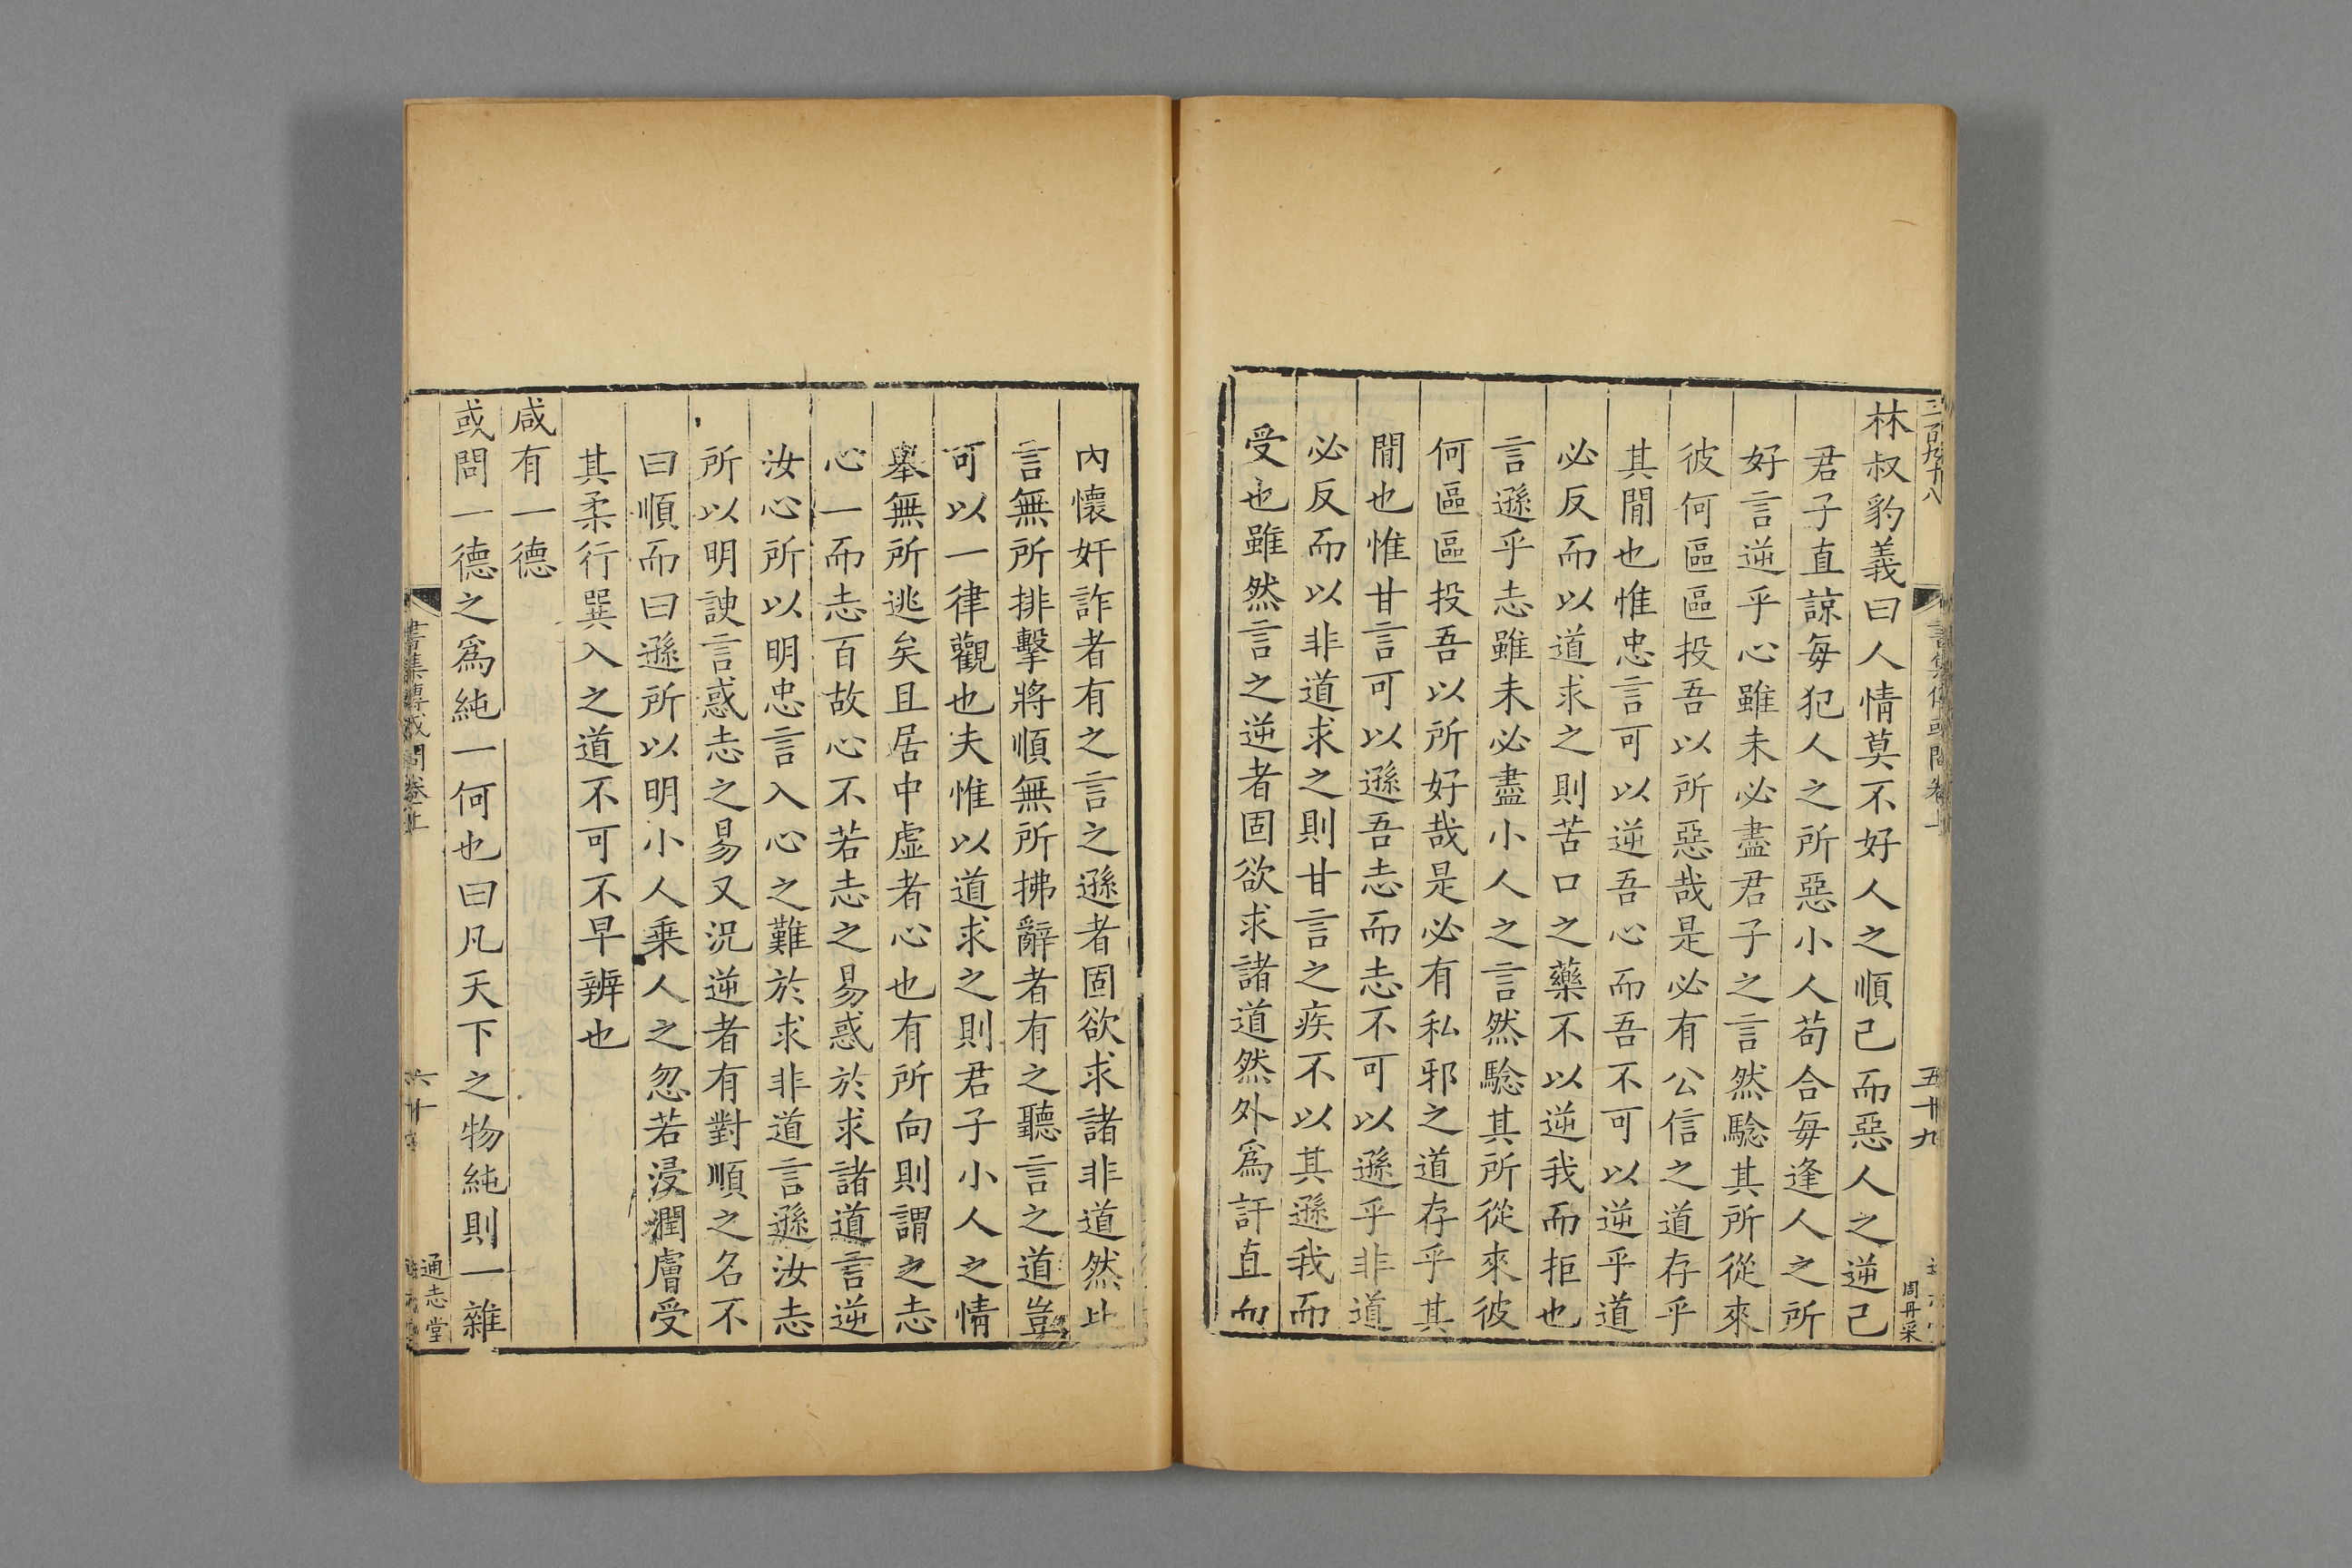 三百九十八
書集傳或問卷上
五十九
周丹采
林叔豹義曰人情莫不好人之順己而惡人之逆己
君子直諒每犯人之所惡小人苟合每逢人之所
好言逆乎心雖未必盡君子之言然騐其所從來
彼何區區投吾以所惡哉是必有公信之道存乎
其閒也惟忠言可以逆吾心而吾不可以逆乎道
必反而以道求之則苦口之藥不以逆我而拒也
言遜乎志雖未必盡小人之言然騐其所從來彼
何區區投吾以所好哉是必有私邪之道存乎其
閒也惟甘言可以遜吾志而志不可以遜乎非道
必反而以非道求之則甘言之疾不以其遜我而
受也雖然言之逆者固欲求諸道然外爲訐直而
內懷奸詐者有之言之遜者固欲求諸非道然止
言無所排擊將順無所拂辭者有之聽言之道豈
可以一律觀也夫惟以道求之則君子小人之情
舉無所逃矣且居中虛者心也有所向則謂之志
心一而志百故心不若志之易惑於求諸道言逆
汝心所以明忠言入心之難於求非道言遜汝志
所以明諛言惑志之易又況逆者有對順之名不
曰順而曰遜所以明小人乗人之忽若浸潤膚受
其柔行巽入之道不可不早辨也
咸有一德
或問一德之爲純一何也曰凡天下之物純則一雜
書集傳或問卷上
六十
通志堂